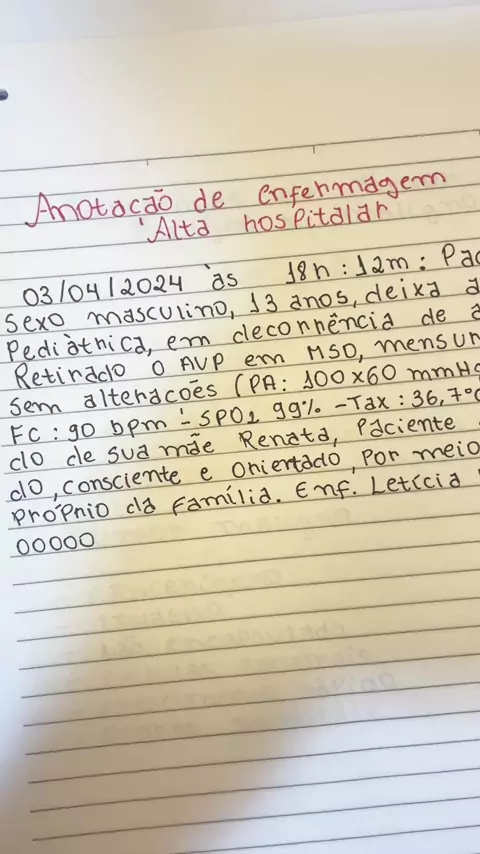 Anotacão de enfermagem
Alta hospitalar
03/04/2024 às 18h:12m: Pac
Sexo masculino, 13 anos, deixa a
Pediàtrica, em decorrência de a
Retirado o AVP em MSD, mensur
Sem alteracões (PA: 100x60 mmHg
FC: 90 bpm - SPO2 99% - Tax: 36,7°C
do de sua mãe Renata, Paciente
do, consciente e orientado, por meio
Próprio da família. Enf. Letícia
00000